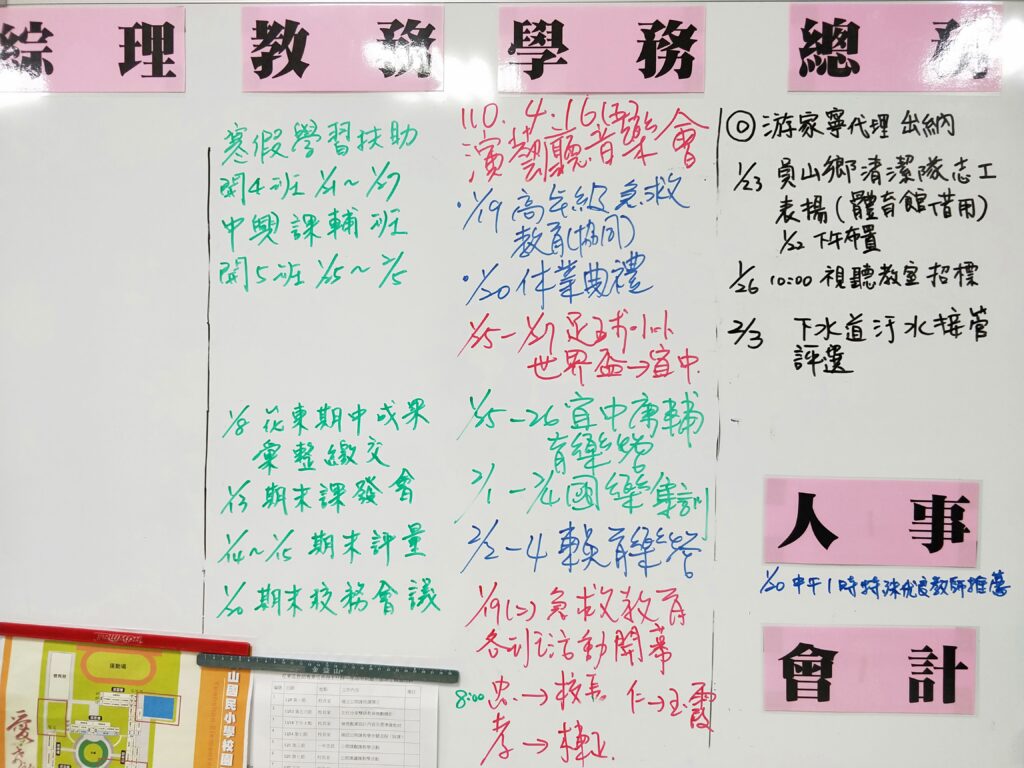 綜理
教務
學務
總務
寒假學習扶助
開4班 1/21~1/27
中興課輔班
開5班 1/25~2/5
1/8 花東期中成果
彙整繳交
1/13 期末課發會
1/14~1/15 期末評量
1/20 期末校務會議
110.4.16.(五)
演藝廳音樂會
·1/19 高年級急救
教育(協同)
·1/20 休業典禮
1/25-1/27 足球小小
世界盃→宜中.
1/25-26 宜中康輔
育樂營
2/1-2/4 國樂集訓
2/2-4 賴育樂營
1/19(二)急救教育
各到活動開幕
8:00 忠→校長 仁→玉霞
孝→
◎游家寧代理 出納
1/23 員山鄉清潔隊志工
表揚(體育館借用)
1/22 下午布置
1/26 10:00 視聽教室招標
2/3 下水道汙水接管
評選
人事
1/20 中午1時特殊優良教師推薦
會計
山國民小學校園
運動場